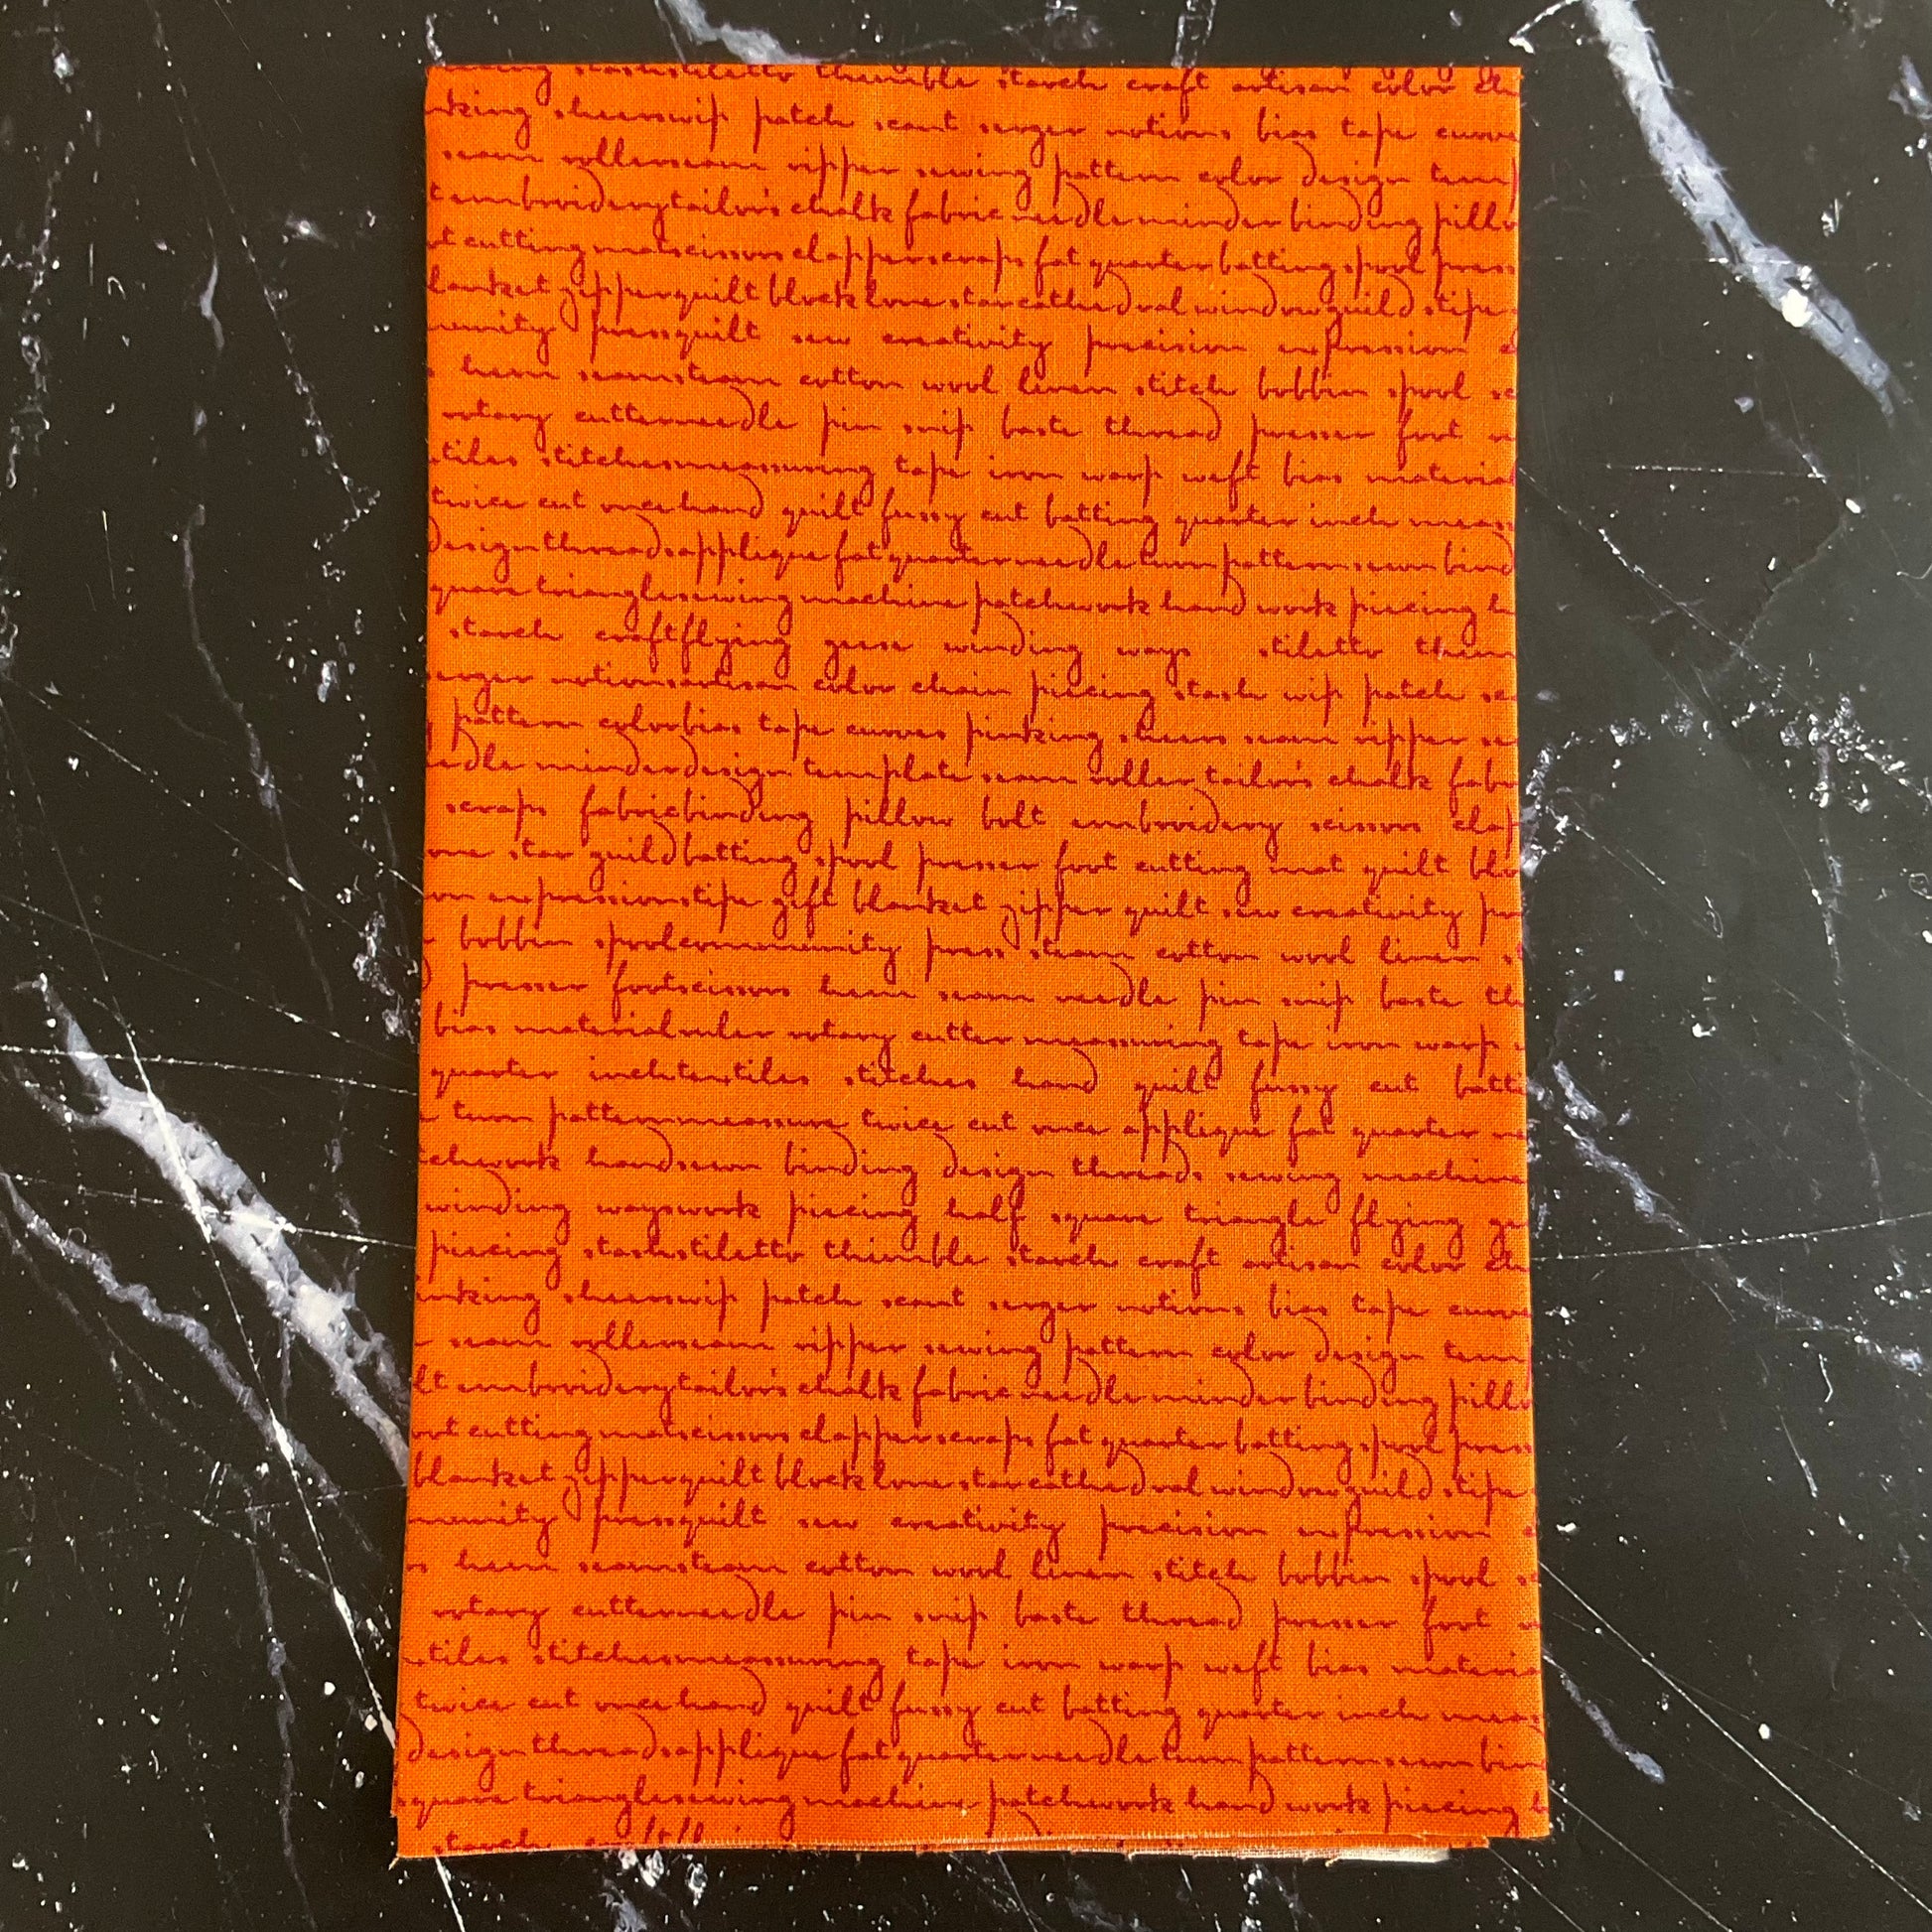 stash stiletto thimble starch craft artisan color
shears wip patch scant serger notions bias tape curve
seam roller seam ripper sewing pattern color design tem
t embroidery tailor's chalk fabric needle minder binding pillo
ot cutting mat scissors clapper scraps fat quarter batting spool press
blanket zipper quilt block lone star cathedral window guild stipe
munity press quilt sew creativity precision expression
hem seam steam cotton wool linen stitch bobbin spool
rotary cutter needle pin snip baste thread presser foot
tiles stitches measuring tape iron warp weft bias material
twice cut once hand quilt fussy cut batting quarter inch meas
design threads applique fat quarter needle turn pattern sewn bind
quare triangle sewing machine patchwork hand work piecing
starch craft flying geese winding ways stiletto thim
erger notions artisan color chain piecing stash wip patch sc
pattern color bias tape curves pinking shears seam ripper se
edle minder design template seam roller tailor's chalk fabr
scraps fabric binding pillow bolt embroidery scissors clap
one star guild batting spool presser foot cutting mat quilt blo
on expression stipe gift blanket zipper quilt sew creativity pr
bobbin spool community press steam cotton wool linen
presser foot scissors hem seam needle pin snip baste th
bias material ruler rotary cutter measuring tape iron warp
quarter inch textiles stitches hand quilt fussy cut batt
turn pattern measure twice cut once applique fat quarter
chwork hand sewn binding design threads sewing machine
winding ways work piecing half square triangle flying ge
piecing stash stiletto thimble starch craft artisan color
inking shears wip patch scant serger notions bias tape curve
seam roller seam ripper sewing pattern color design tem
lt embroidery tailor's chalk fabric needle minder binding pillo
ot cutting mat scissors clapper scraps fat quarter batting spool press
blanket zipper quilt block lone star cathedral window guild stipe
munity press quilt sew creativity precision expression
hem seam steam cotton wool linen stitch bobbin spool
rotary cutter needle pin snip baste thread presser foot
tiles stitches measuring tape iron warp weft bias materia
twice cut once hand quilt fussy cut batting quarter inch meas
design threads applique fat quarter needle turn pattern sewn bin
square triangle sewing machine patchwork hand work piecing
starch